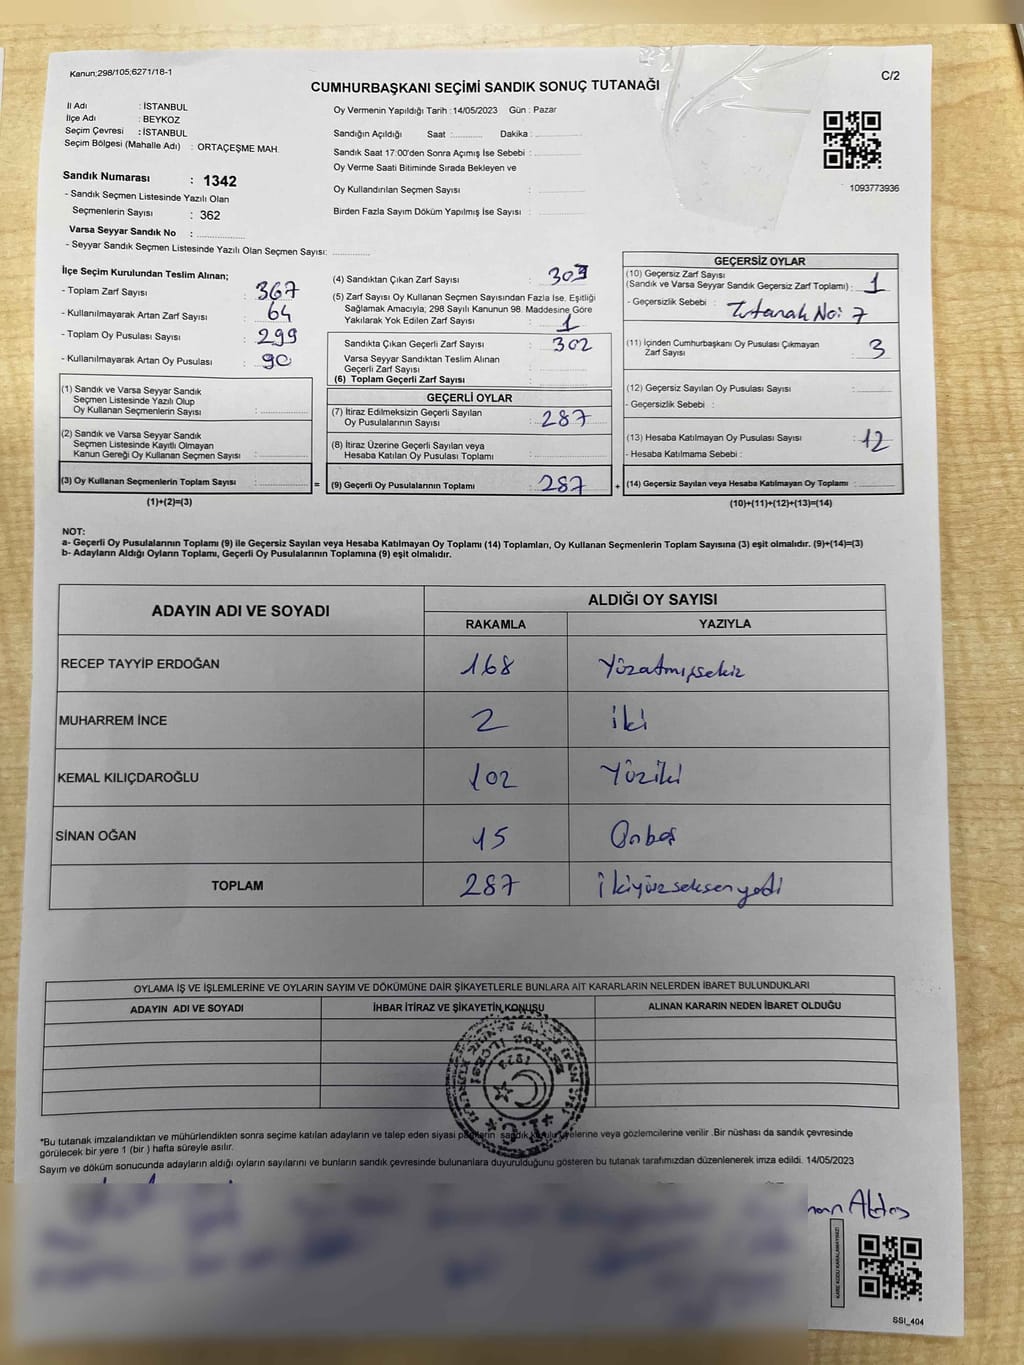 Kanun;298/105;6271/18-1
C/2
CUMHURBAŞKANI SEÇİMİ SANDIK SONUÇ TUTANAĞI
İl Adı : İSTANBUL
İlçe Adı : BEYKOZ
Seçim Çevresi : İSTANBUL
Seçim Bölgesi (Mahalle Adı) : ORTAÇEŞME MAH.
Sandık Numarası : 1342
- Sandık Seçmen Listesinde Yazılı Olan
Seçmenlerin Sayısı : 362
Varsa Seyyar Sandık No :
- Seyyar Sandık Seçmen Listesinde Yazılı Olan Seçmen Sayısı:
Oy Vermenin Yapıldığı Tarih : 14/05/2023 Gün : Pazar
Sandığın Açıldığı Saat : Dakika :
Sandık Saat 17:00'den Sonra Açılmış İse Sebebi :
Oy Verme Saati Bitiminde Sırada Bekleyen ve
Oy Kullandırılan Seçmen Sayısı :
Birden Fazla Sayım Döküm Yapılmış İse Sayısı :
1093773936
İlçe Seçim Kurulundan Teslim Alınan;
- Toplam Zarf Sayısı : 367
- Kullanılmayarak Artan Zarf Sayısı : 64
- Toplam Oy Pusulası Sayısı : 299
- Kullanılmayarak Artan Oy Pusulası : 90
(1) Sandık ve Varsa Seyyar Sandık
Seçmen Listesinde Yazılı Olup
Oy Kullanan Seçmenlerin Sayısı :
(2) Sandık ve Varsa Seyyar Sandık
Seçmen Listesinde Kayıtlı Olmayan
Kanun Gereği Oy Kullanan Seçmen Sayısı :
(3) Oy Kullanan Seçmenlerin Toplam Sayısı : =
(1)+(2)=(3)
(4) Sandıktan Çıkan Zarf Sayısı : 303
(5) Zarf Sayısı Oy Kullanan Seçmen Sayısından Fazla İse, Eşitliği
Sağlamak Amacıyla; 298 Sayılı Kanunun 98. Maddesine Göre
Yakılarak Yok Edilen Zarf Sayısı : 1
Sandıkta Çıkan Geçerli Zarf Sayısı : 302
Varsa Seyyar Sandıktan Teslim Alınan
Geçerli Zarf Sayısı :
(6) Toplam Geçerli Zarf Sayısı :
GEÇERLİ OYLAR
(7) İtiraz Edilmeksizin Geçerli Sayılan
Oy Pusulalarının Sayısı : 287
(8) İtiraz Üzerine Geçerli Sayılan veya
Hesaba Katılan Oy Pusulası Toplamı :
(9) Geçerli Oy Pusulalarının Toplamı : 287 +
GEÇERSİZ OYLAR
(10) Geçersiz Zarf Sayısı
(Sandık ve Varsa Seyyar Sandık Geçersiz Zarf Toplamı) : 1
- Geçersizlik Sebebi : Tutanak No: 7
(11) İçinden Cumhurbaşkanı Oy Pusulası Çıkmayan
Zarf Sayısı : 3
(12) Geçersiz Sayılan Oy Pusulası Sayısı :
- Geçersizlik Sebebi :
(13) Hesaba Katılmayan Oy Pusulası Sayısı : 12
- Hesaba Katılmama Sebebi :
(14) Geçersiz Sayılan veya Hesaba Katılmayan Oy Toplamı :
(10)+(11)+(12)+(13)=(14)
NOT:
a- Geçerli Oy Pusulalarının Toplamı (9) ile Geçersiz Sayılan veya Hesaba Katılmayan Oy Toplamı (14) Toplamları, Oy Kullanan Seçmenlerin Toplam Sayısına (3) eşit olmalıdır. (9)+(14)=(3)
b- Adayların Aldığı Oyların Toplamı, Geçerli Oy Pusulalarının Toplamına (9) eşit olmalıdır.
ADAYIN ADI VE SOYADI
ALDIĞI OY SAYISI
RAKAMLA YAZIYLA
RECEP TAYYİP ERDOĞAN 168 Yüzatmışsekiz
MUHARREM İNCE 2 iki
KEMAL KILIÇDAROĞLU 102 Yüziki
SİNAN OĞAN 15 Onbeş
TOPLAM 287 ikiyüzseksenyedi
OYLAMA İŞ VE İŞLEMLERİNE VE OYLARIN SAYIM VE DÖKÜMÜNE DAİR ŞİKAYETLERLE BUNLARA AİT KARARLARIN NELERDEN İBARET BULUNDUKLARI
ADAYIN ADI VE SOYADI İHBAR İTİRAZ VE ŞİKAYETİN KONUSU ALINAN KARARIN NEDEN İBARET OLDUĞU
*Bu tutanak imzalandıktan ve mühürlendikten sonra seçime katılan adayların ve talep eden siyasi partilerin sandık kurulu üyelerine veya gözlemcilerine verilir .Bir nüshası da sandık çevresinde
görülecek bir yere 1 (bir ) hafta süreyle asılır.
Sayım ve döküm sonucunda adayların aldığı oyların sayılarını ve bunların sandık çevresinde bulunanlara duyurulduğunu gösteren bu tutanak tarafımızdan düzenlenerek imza edildi. 14/05/2023
KARE KODU KARALAMAYINIZ!
SSI_404